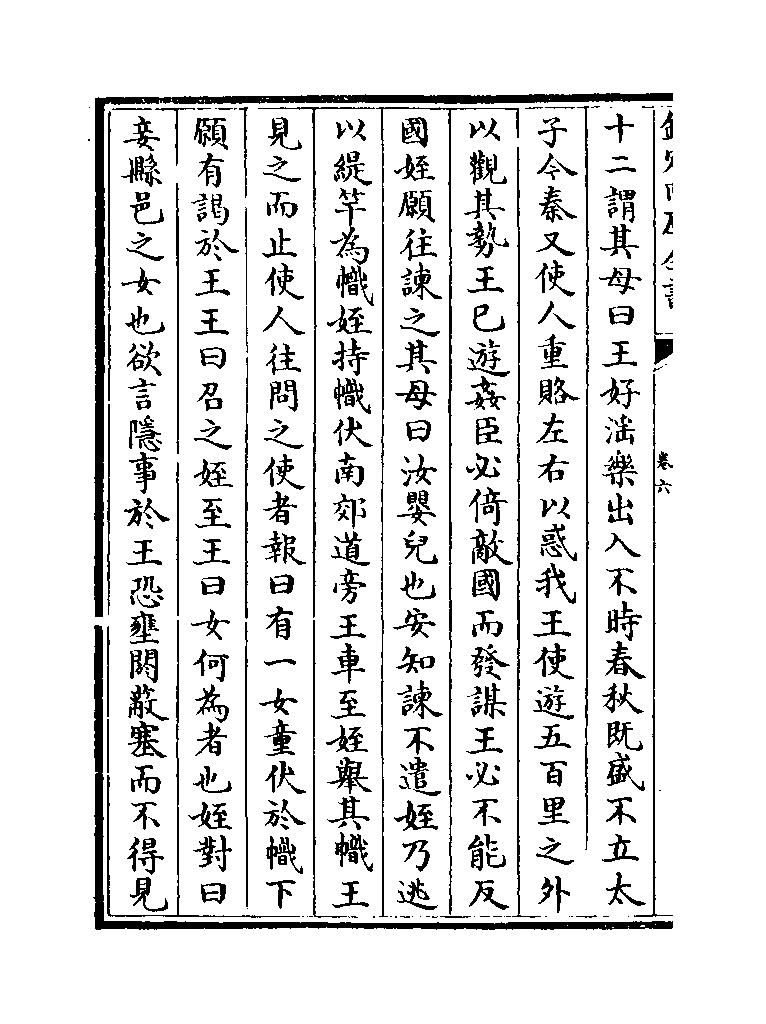 欽定四庫全書
卷六
十二謂其母曰王好滛樂出入不時春秋既盛不立太
子今秦又使人重賂左右以惑我王使遊五百里之外
以觀其勢王已遊姦臣必倚敵國而發謀王必不能反
國姪願往諫之其母曰汝嬰兒也安知諫不遣姪乃逃
以緹竿為幟姪持幟伏南郊道旁王車至姪舉其幟王
見之而止使人往問之使者報曰有一女童伏於幟下
願有謁於王王曰召之姪至王曰女何為者也姪對曰
妾縣邑之女也欲言隱事於王恐壅閼蔽塞而不得見